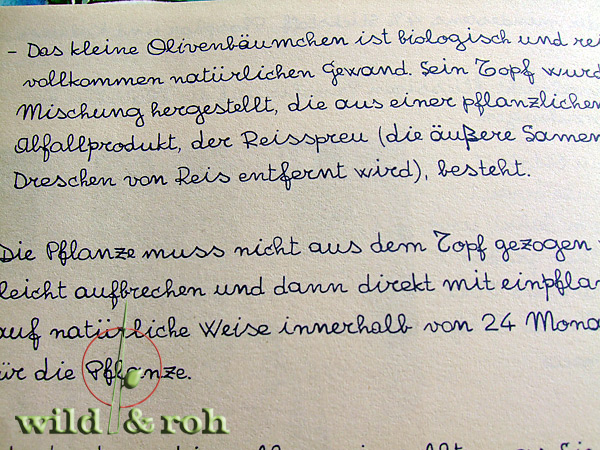 - Das kleine Olivenbäumchen ist biologisch und
vollkommen natürlichen Gewand. Sein Topf wurd
Mischung hergestellt, die aus einer pflanzlichen
Abfallprodukt, der Reisspreu (die äußere Samen
Dreschen von Reis entfernt wird), besteht.
Die Pflanze muss nicht aus dem Topf gezogen
leicht aufbrechen und dann direkt mit einpfla
auf natürliche Weise innerhalb von 24 Mona
ür die Pflanze.
wild & roh